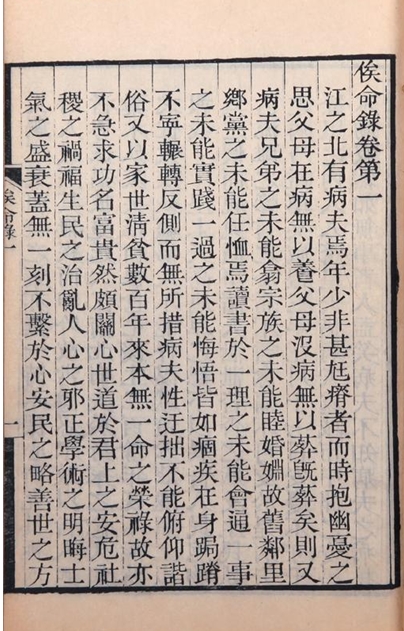 俟命錄卷第一
江之北有病夫焉年少非甚尪瘠者而時抱幽憂之
思父母在病無以養父母沒病無以葬旣葬矣則又
病夫兄弟之未能翕宗族之未能睦婚婣故舊鄰里
鄉黨之未能任恤焉讀書於一理之未能會通一事
之未能實踐一過之未能悔悟皆如痼疾在身跼蹐
不寧輾轉反側而無所措病夫性迂拙不能俯仰諧
俗又以家世淸貧數百年來本無一命之榮祿故亦
不急求功名富貴然頗關心世道於君上之安危社
稷之禍福生民之治亂人心之邪正學術之明晦士
氣之盛衰蓋無一刻不繫於心安民之略善世之方
俟命錄一
一